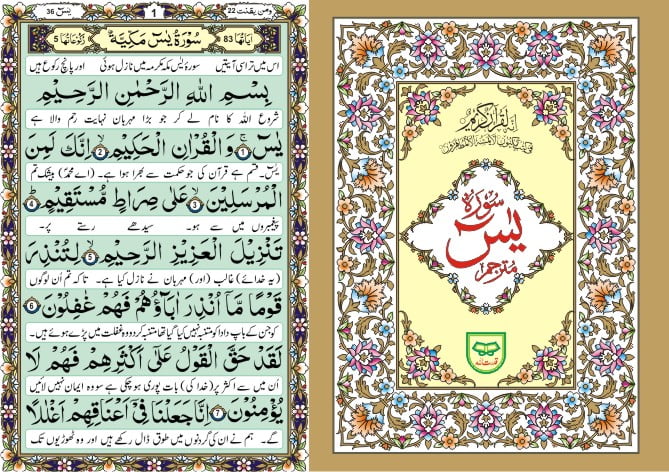 ومن یقنت 22
1
یٰسٓ 36
اٰیاتها 83
سُوْرَةُ یٰسٓ مَكِّیَّةٌ
رُكُوْعَاتُهَا 5
اس میں تراسی آیتیں
سورۂ یٰسٓ مکہ مکرمہ میں نازل ہوئی
اور پانچ رکوع ہیں
بِسْمِ اللّٰهِ الرَّحْمٰنِ الرَّحِیْمِ
شروع اللہ کا نام لے کر جو بڑا مہربان نہایت رحم والا ہے
یٰسٓ ۚ 1 وَ الْقُرْاٰنِ الْحَكِیْمِ ۙ 2 اِنَّكَ لَمِنَ
یٰسٓ۔ قسم ہے قرآن کی جو حکمت سے بھرا ہوا ہے۔ (اے محمدؐ) بیشک تم
الْمُرْسَلِیْنَ ۙ 3 عَلٰی صِرَاطٍ مُّسْتَقِیْمٍ ؕ 4
پیغمبروں میں سے ہو۔ سیدھے رستے پر۔
تَنْزِیْلَ الْعَزِیْزِ الرَّحِیْمِ ۙ 5 لِتُنْذِرَ
(یہ خدائے) غالب (اور) مہربان نے نازل کیا ہے۔ تاکہ تم ان لوگوں
قَوْمًا مَّاۤ اُنْذِرَ اٰبَآؤُهُمْ فَهُمْ غٰفِلُوْنَ 6
کو جن کے باپ دادا کو متنبہ نہیں کیا گیا تھا متنبہ کردو وہ غفلت میں پڑے ہوئے ہیں۔
لَقَدْ حَقَّ الْقَوْلُ عَلٰۤی اَكْثَرِهِمْ فَهُمْ لَا
اُن میں سے اکثر پر (خدا کی) بات پوری ہو چکی ہے سو وہ ایمان نہیں لائیں
یُؤْمِنُوْنَ 7 اِنَّا جَعَلْنَا فِیْۤ اَعْنَاقِهِمْ اَغْلٰلًا
گے۔ ہم نے ان کی گردنوں میں طوق ڈال رکھے ہیں اور وہ ٹھوڑیوں تک
اِنَّهٗ لَقُرْاٰنٌ كَرِیْمٌ
سورة
یٰسٓ
مترجم